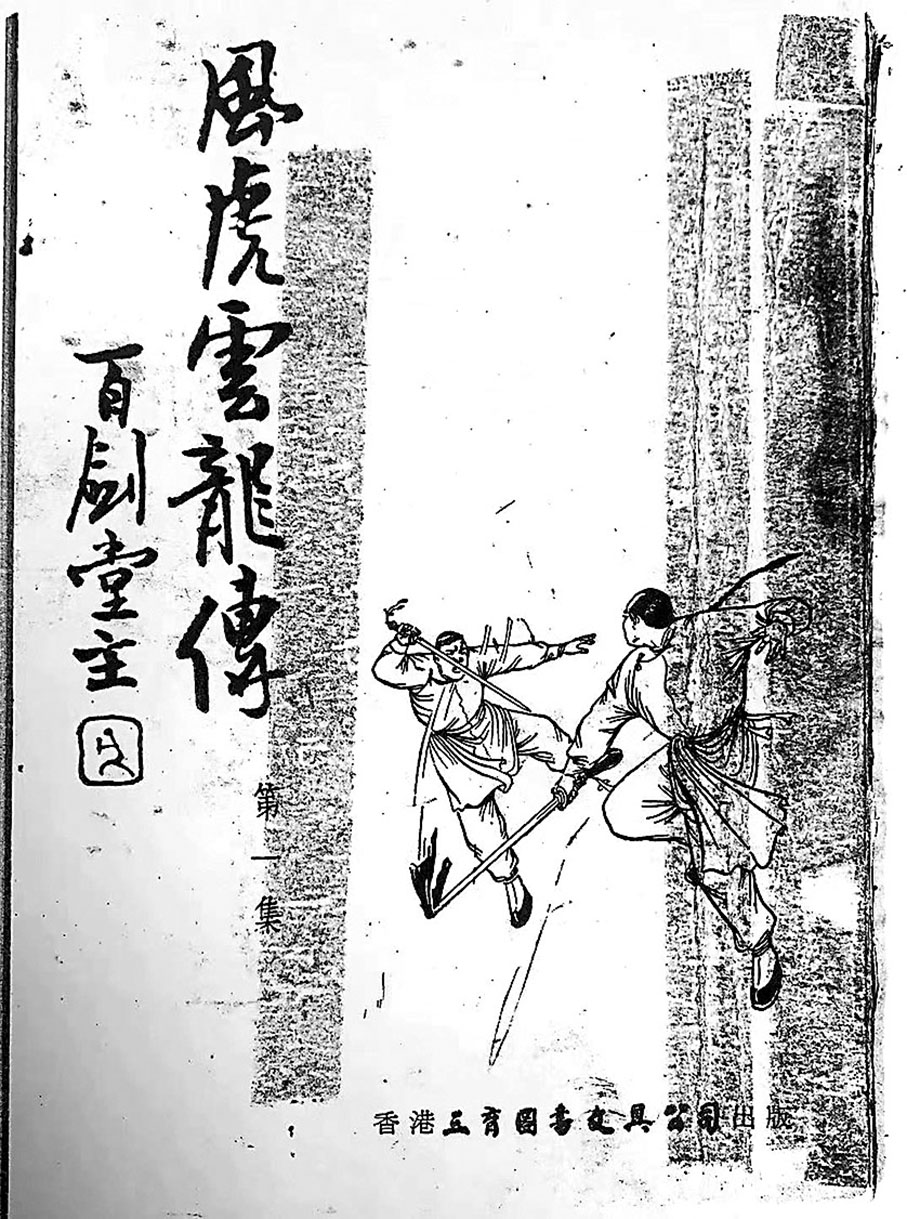 風虎雲龍傳
百劍堂主
第一集
香港三育圖書文具公司出版